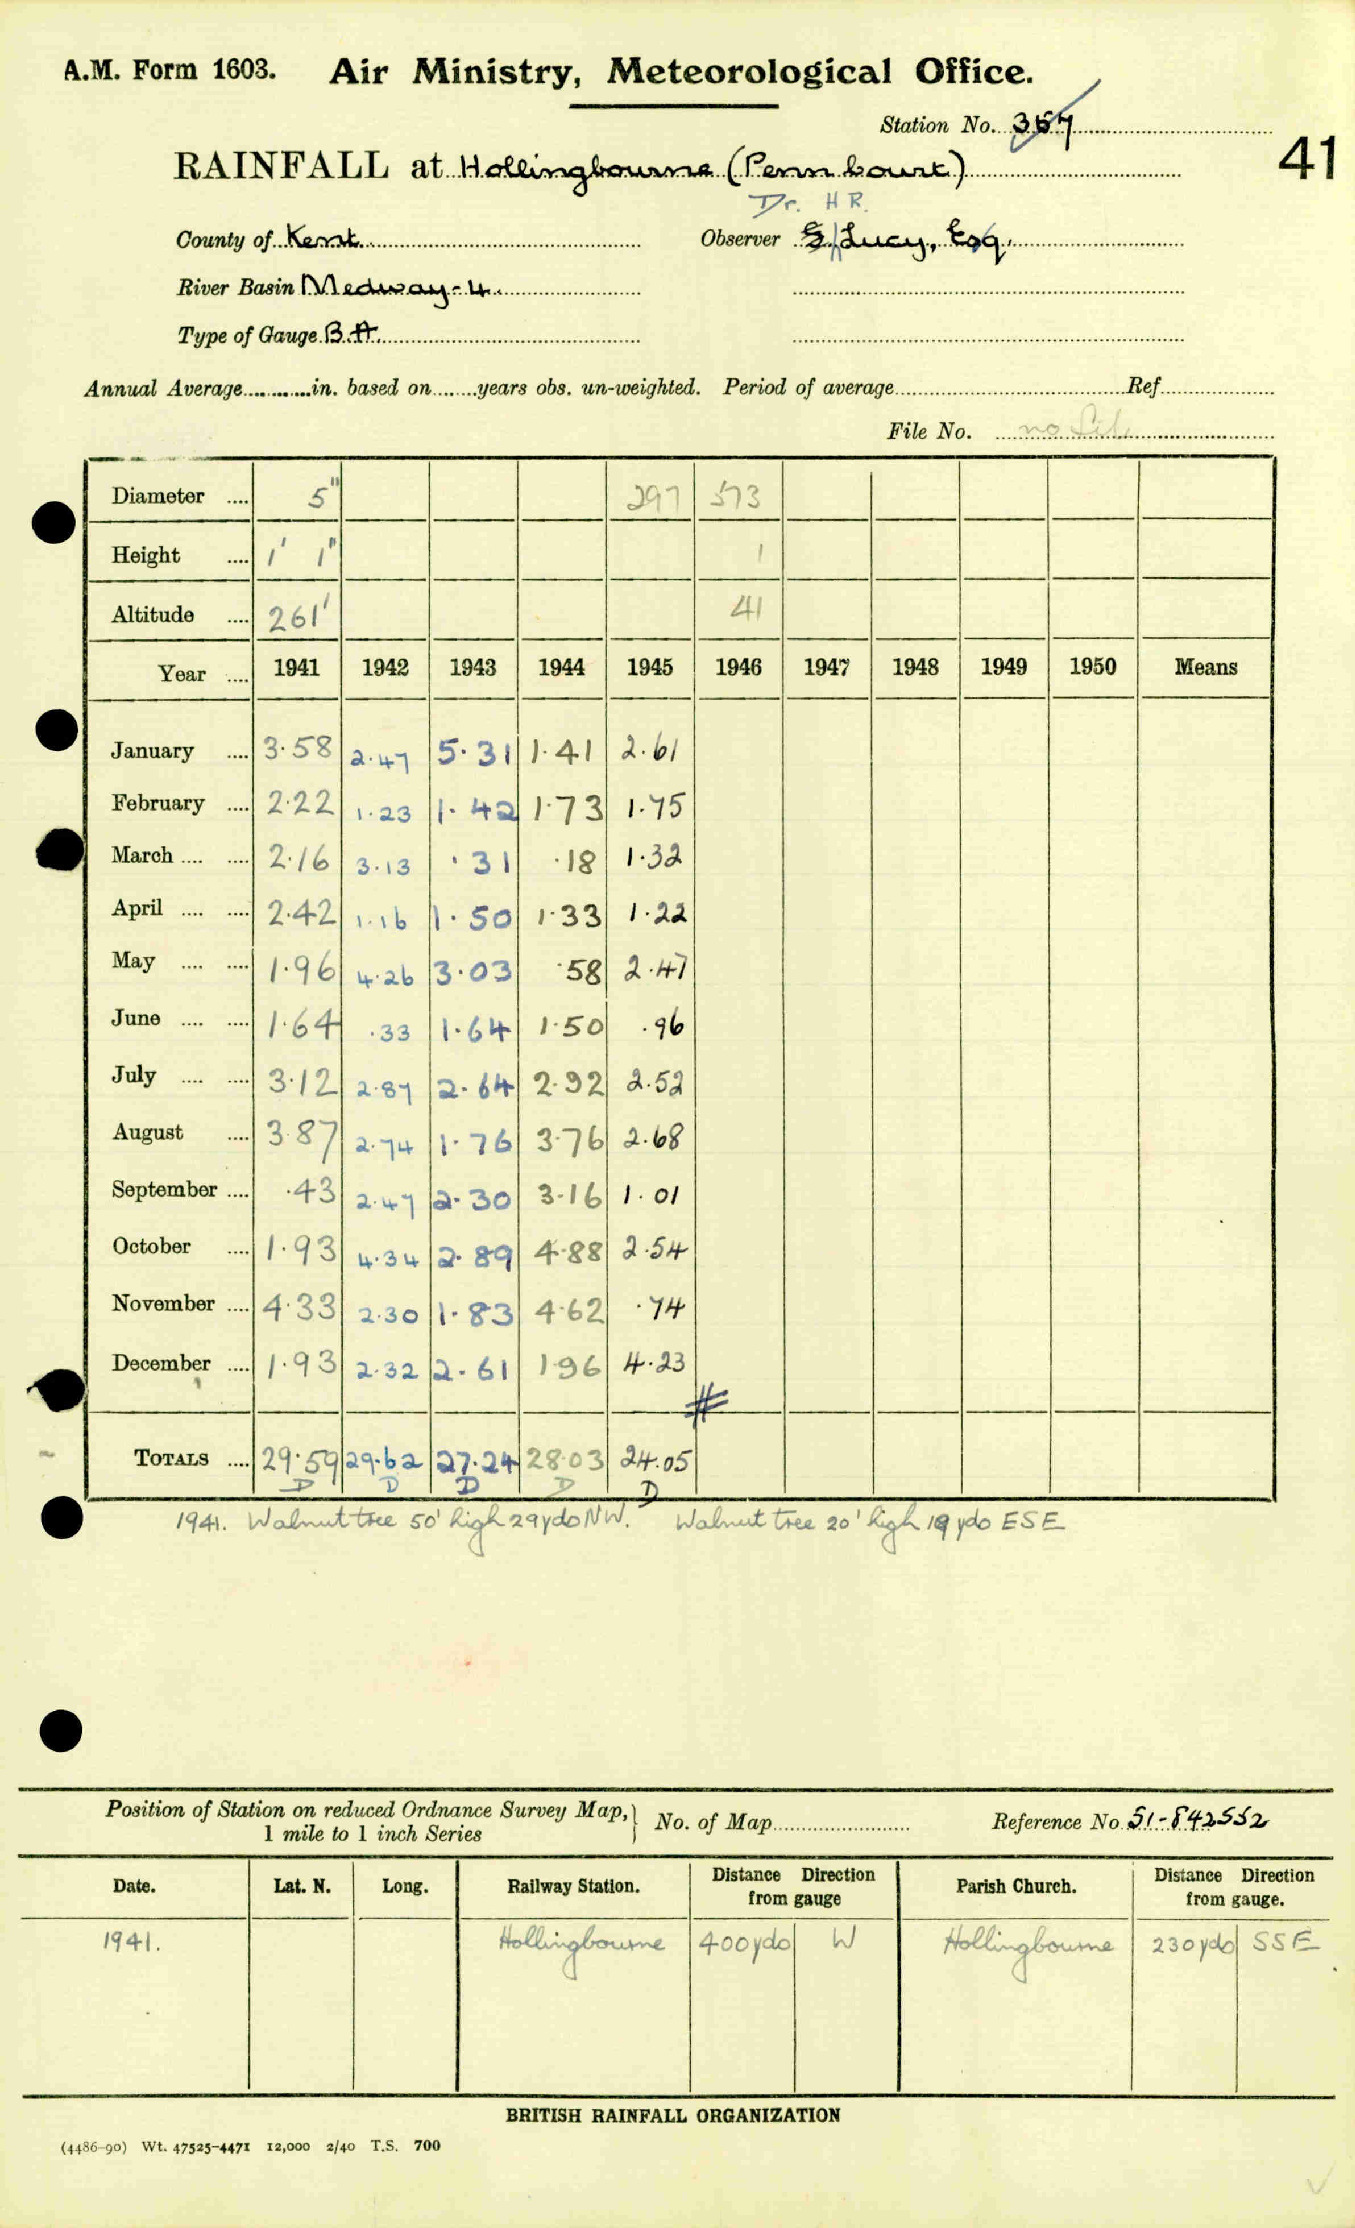 A.M. Form 1603. Air Ministry, Meteorological Office.
Station No. 357
41
RAINFALL at Hollingbourne (Penn Court)
Dr. H R.
County of Kent Observer Lucy, Esq.
River Basin Medway-4.
Type of Gauge B.A.
Annual Average............in. based on........years obs. un-weighted. Period of average Ref
File No.
Diameter .... 5" 297 573
Height .... 1' 1" 1
Altitude .... 261' 41
Year .... 1941 1942 1943 1944 1945 1946 1947 1948 1949 1950 Means
January .... 3.58 2.47 5.31 1.41 2.61
February .... 2.22 1.23 1.42 1.73 1.75
March .... .... 2.16 3.13 .31 .18 1.32
April .... .... 2.42 1.16 1.50 1.33 1.22
May .... .... 1.96 4.26 3.03 .58 2.47
June .... .... 1.64 .33 1.64 1.50 .96
July .... .... 3.12 2.87 2.64 2.92 2.52
August .... 3.87 2.74 1.76 3.76 2.68
September .... .43 2.47 2.30 3.16 1.01
October .... 1.93 4.34 2.89 4.88 2.54
November .... 4.33 2.30 1.83 4.62 .74
December .... 1.93 2.32 2.61 1.96 4.23
#
TOTALS .... 29.59 29.62 27.24 28.03 24.05
D D D D D
1941. Walnut tree 50' high 29 yds NW. Walnut tree 20' high 19 yds ESE
Position of Station on reduced Ordnance Survey Map, 1 mile to 1 inch Series } No. of Map Reference No. 51-842552
Date. Lat. N. Long. Railway Station. Distance Direction from gauge Parish Church. Distance Direction from gauge.
1941. Hollingbourne 400 yds W Hollingbourne 230 yds SSE
BRITISH RAINFALL ORGANIZATION
(4486-90) Wt. 47525-4471 12,000 2/40 T.S. 700